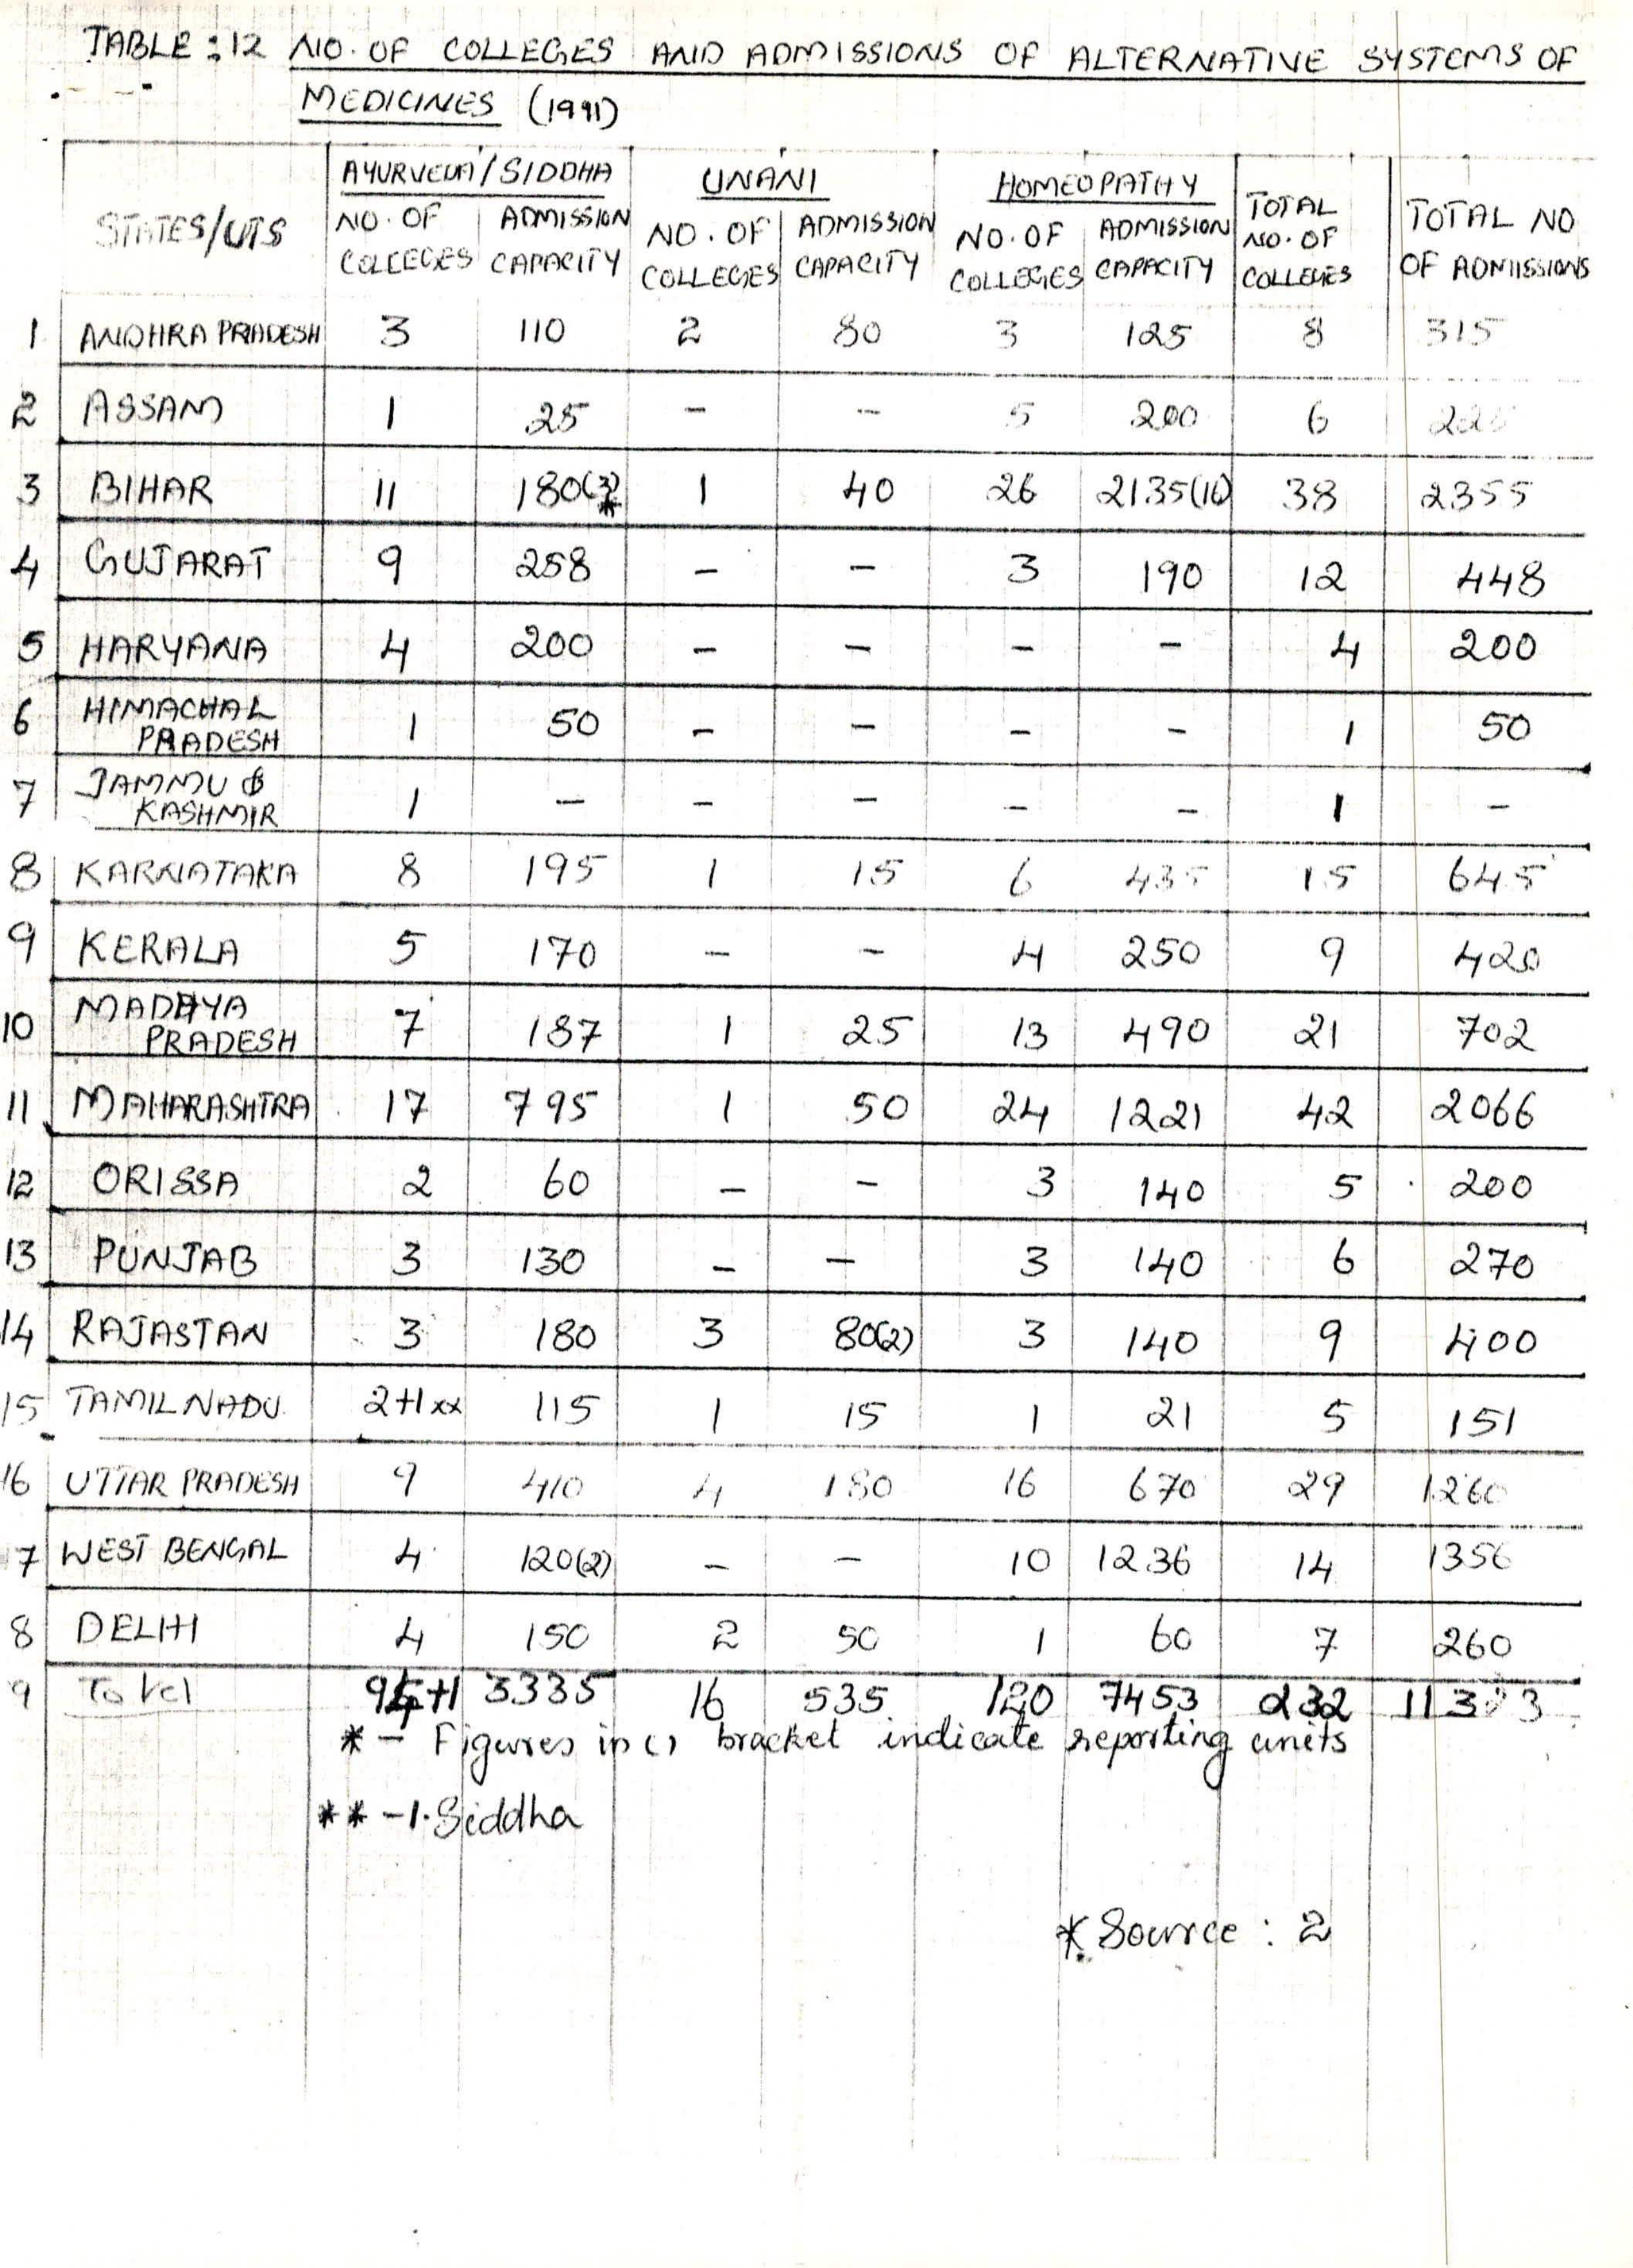 TABLE : 12 NO. OF COLLEGES AND ADMISSIONS OF ALTERNATIVE SYSTEMS OF
MEDICINES (1991)
STATES/UTS AYURVEDA/SIDDHA UNANI HOMEOPATHY TOTAL NO. OF COLLEGES TOTAL NO OF ADMISSIONS
NO. OF COLLEGES ADMISSION CAPACITY NO. OF COLLEGES ADMISSION CAPACITY NO. OF COLLEGES ADMISSION CAPACITY
1 ANDHRA PRADESH 3 110 2 80 3 125 8 315
2 ASSAM 1 25 - - 5 200 6 225
3 BIHAR 11 180(3)* 1 40 26 2135(16) 38 2355
4 GUJARAT 9 258 - - 3 190 12 448
5 HARYANA 4 200 - - - - 4 200
6 HIMACHAL PRADESH 1 50 - - - - 1 50
7 JAMMU & KASHMIR 1 - - - - - 1 -
8 KARNATAKA 8 195 1 15 6 435 15 645
9 KERALA 5 170 - - 4 250 9 420
10 MADHYA PRADESH 7 187 1 25 13 490 21 702
11 MAHARASHTRA 17 795 1 50 24 1221 42 2066
12 ORISSA 2 60 - - 3 140 5 200
13 PUNJAB 3 130 - - 3 140 6 270
14 RAJASTAN 3 180 3 80(2) 3 140 9 400
15 TAMILNADU 2+1xx 115 1 15 1 21 5 151
16 UTTAR PRADESH 9 410 4 180 16 670 29 1260
7 WEST BENGAL 4 120(2) - - 10 1236 14 1356
8 DELHI 4 150 2 50 1 60 7 260
9 Total 3335 16 535 120 7453 232
* - Figures in () bracket indicate reporting units
** - 1. Siddha
* Source : 2